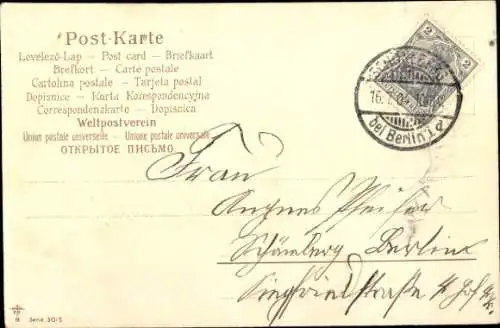 Post-Karte
Levelező-Lap — Post card — Briefkaart
Brefkort — Carte postale
Cartolina postale — Tarjeta postal
Dopisnice — Karta Korespondencyjna
Correspondenzkarte — Dopisnica
Weltpostverein
Union postale universelle — Unione postale universale
ОТКРЫТОЕ ПИСЬМО
2 2
bei Berlin
Frau
Agnes
Schöneberg Berlin
Siegfriedstraße Hof
Serie 3015